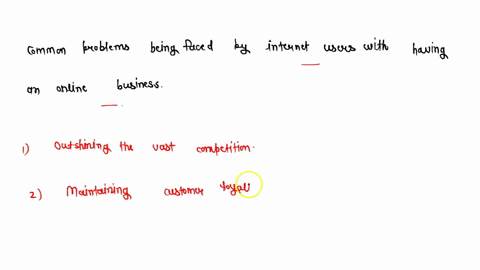 common problems being faced by internet users with having
an online business.
1) Outshining the vast competition.
2) Maintaining customer loyal